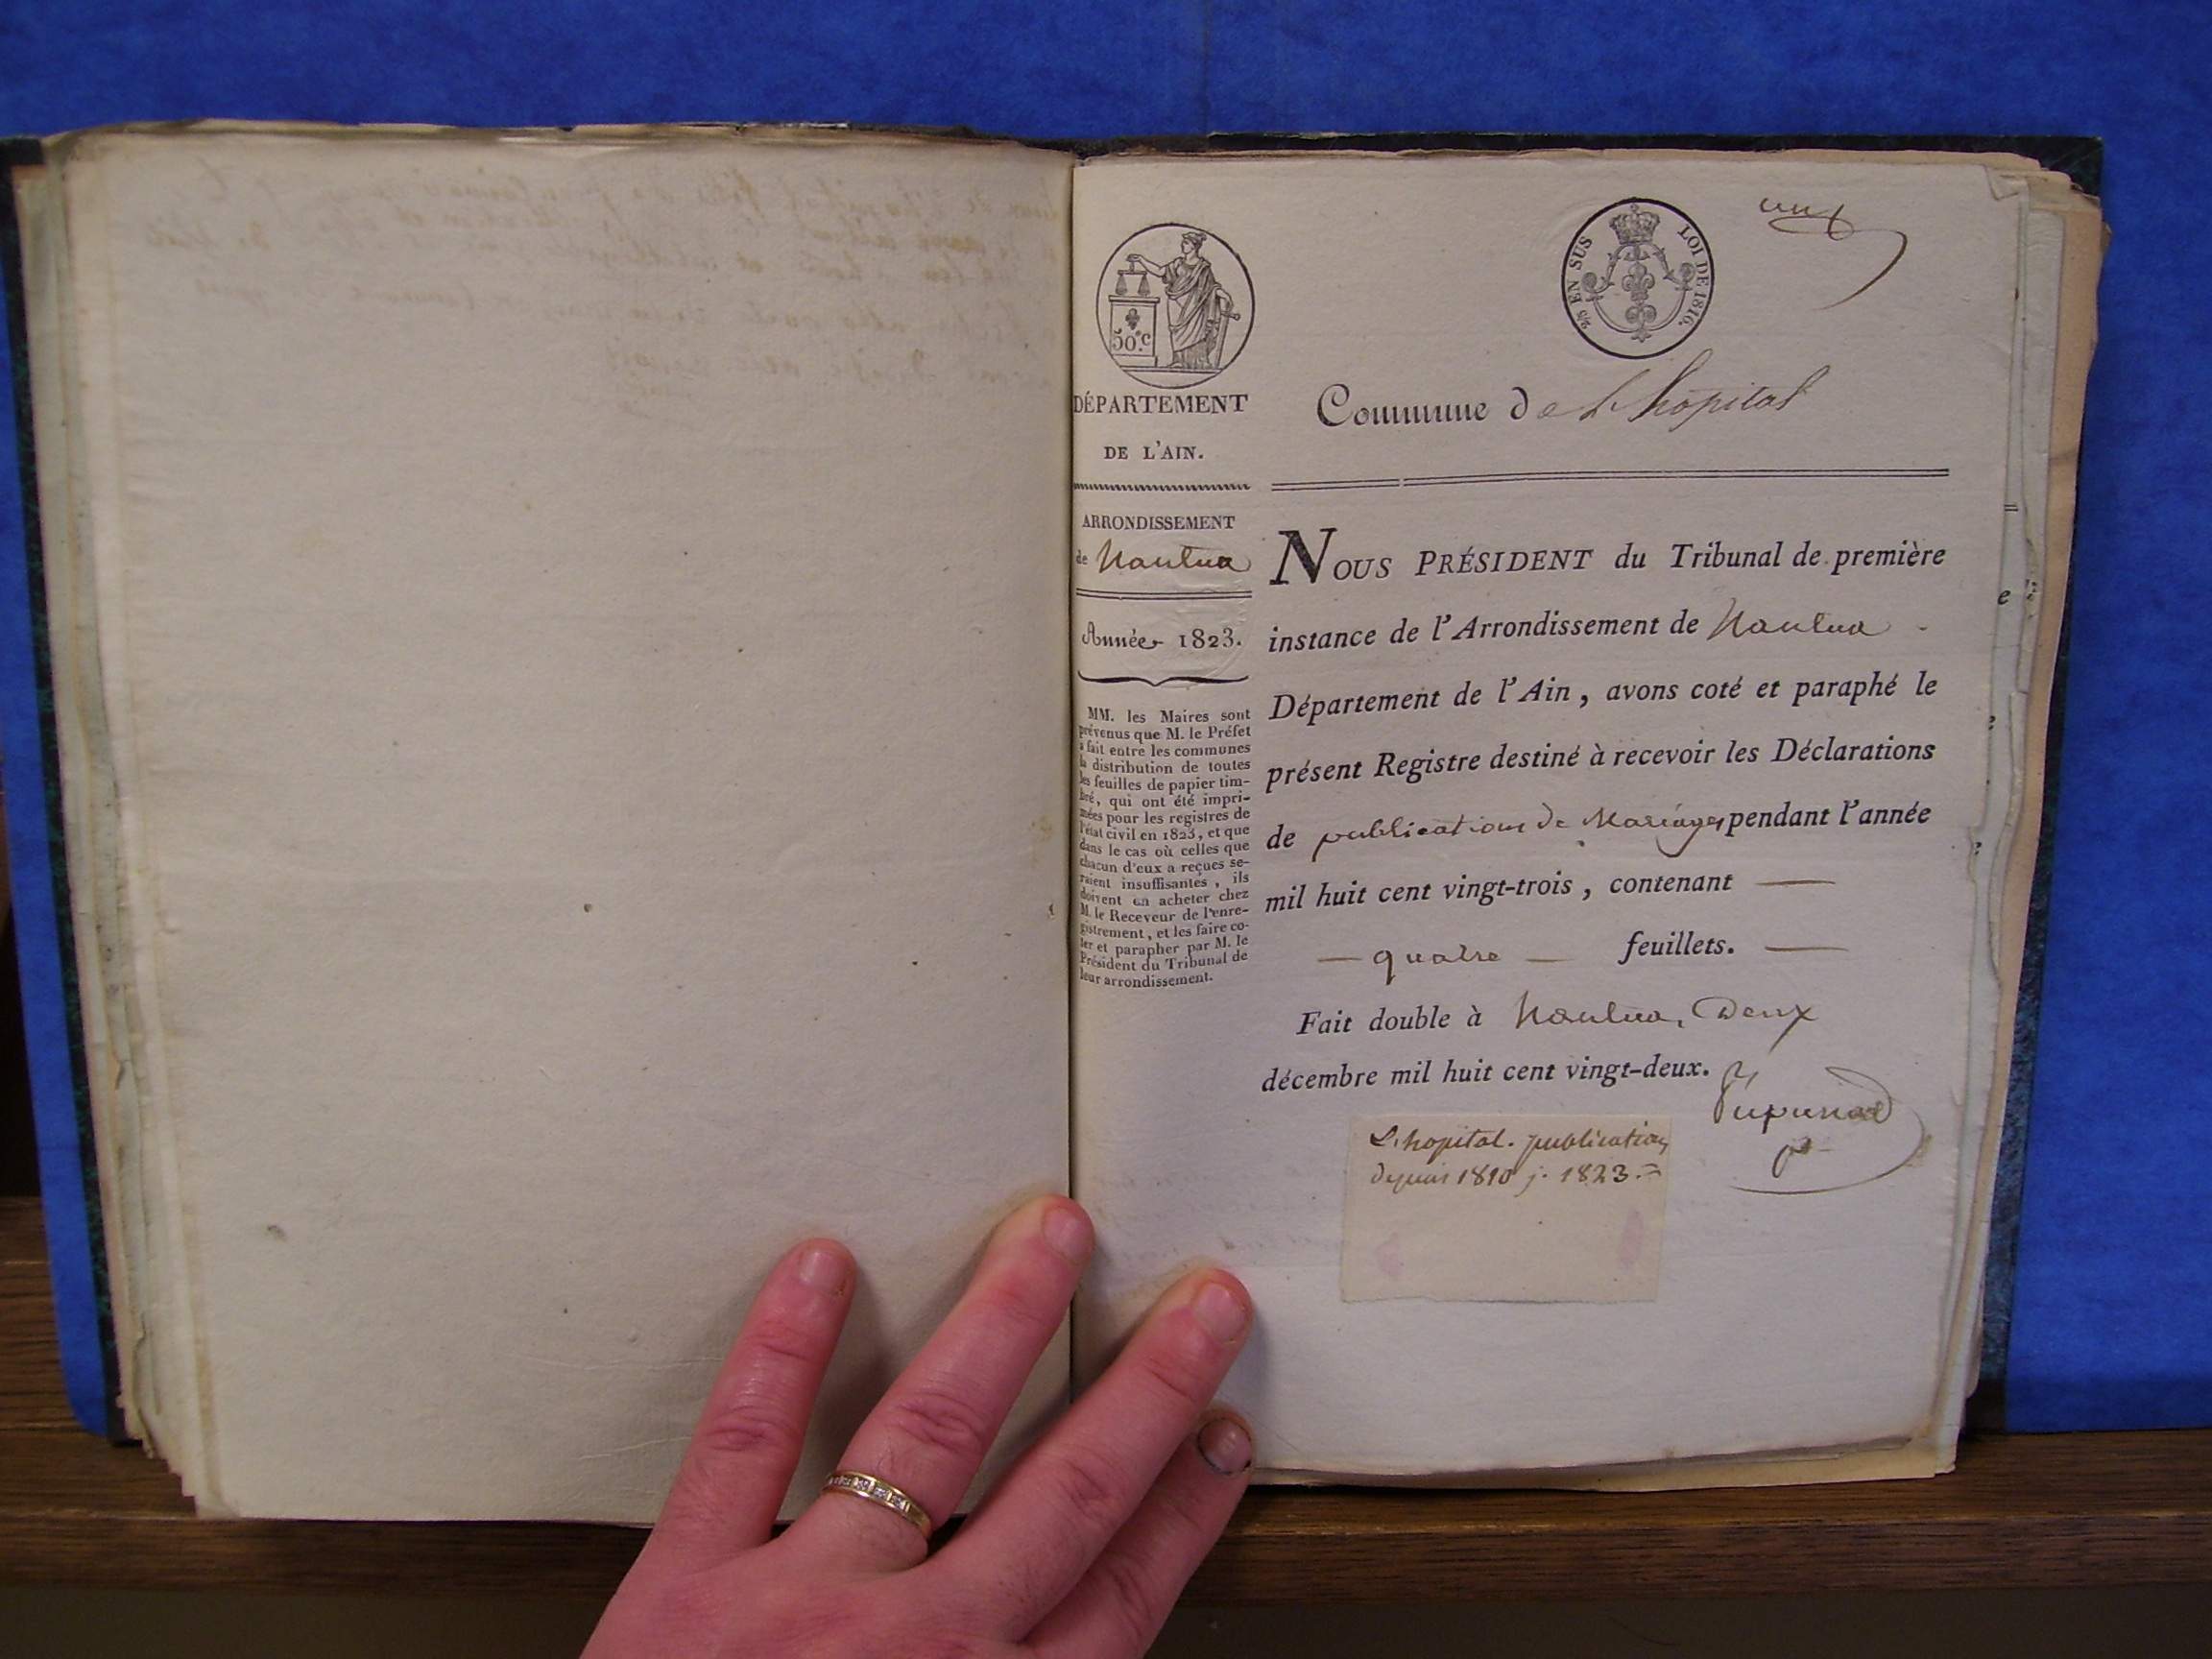 50.c
2/5 EN SUS
LOI DE 1816.
DÉPARTEMENT
DE L'AIN.
ARRONDISSEMENT
de Nantua
Année 1823.
MM. les Maires sont
prévenus que M. le Préfet
a fait entre les communes
la distribution de toutes
les feuilles de papier tim-
bré, qui ont été impri-
mées pour les registres de
l'état civil en 1823, et que
dans le cas où celles que
chacun d'eux a reçues se-
raient insuffisantes, ils
doivent en acheter chez
M. le Receveur de l'enre-
gistrement, et les faire co-
ter et parapher par M. le
Président du Tribunal de
leur arrondissement.
Commune de L'hopital
NOUS PRÉSIDENT du Tribunal de première
instance de l'Arrondissement de Nantua
Département de l'Ain, avons coté et paraphé le
présent Registre destiné à recevoir les Déclarations
de publications de Mariages pendant l'année
mil huit cent vingt-trois, contenant —
— quatre — feuillets. —
Fait double à Nantua, Deux
décembre mil huit cent vingt-deux.
L'hopital. publication
depuis 1810 j. 1823.=